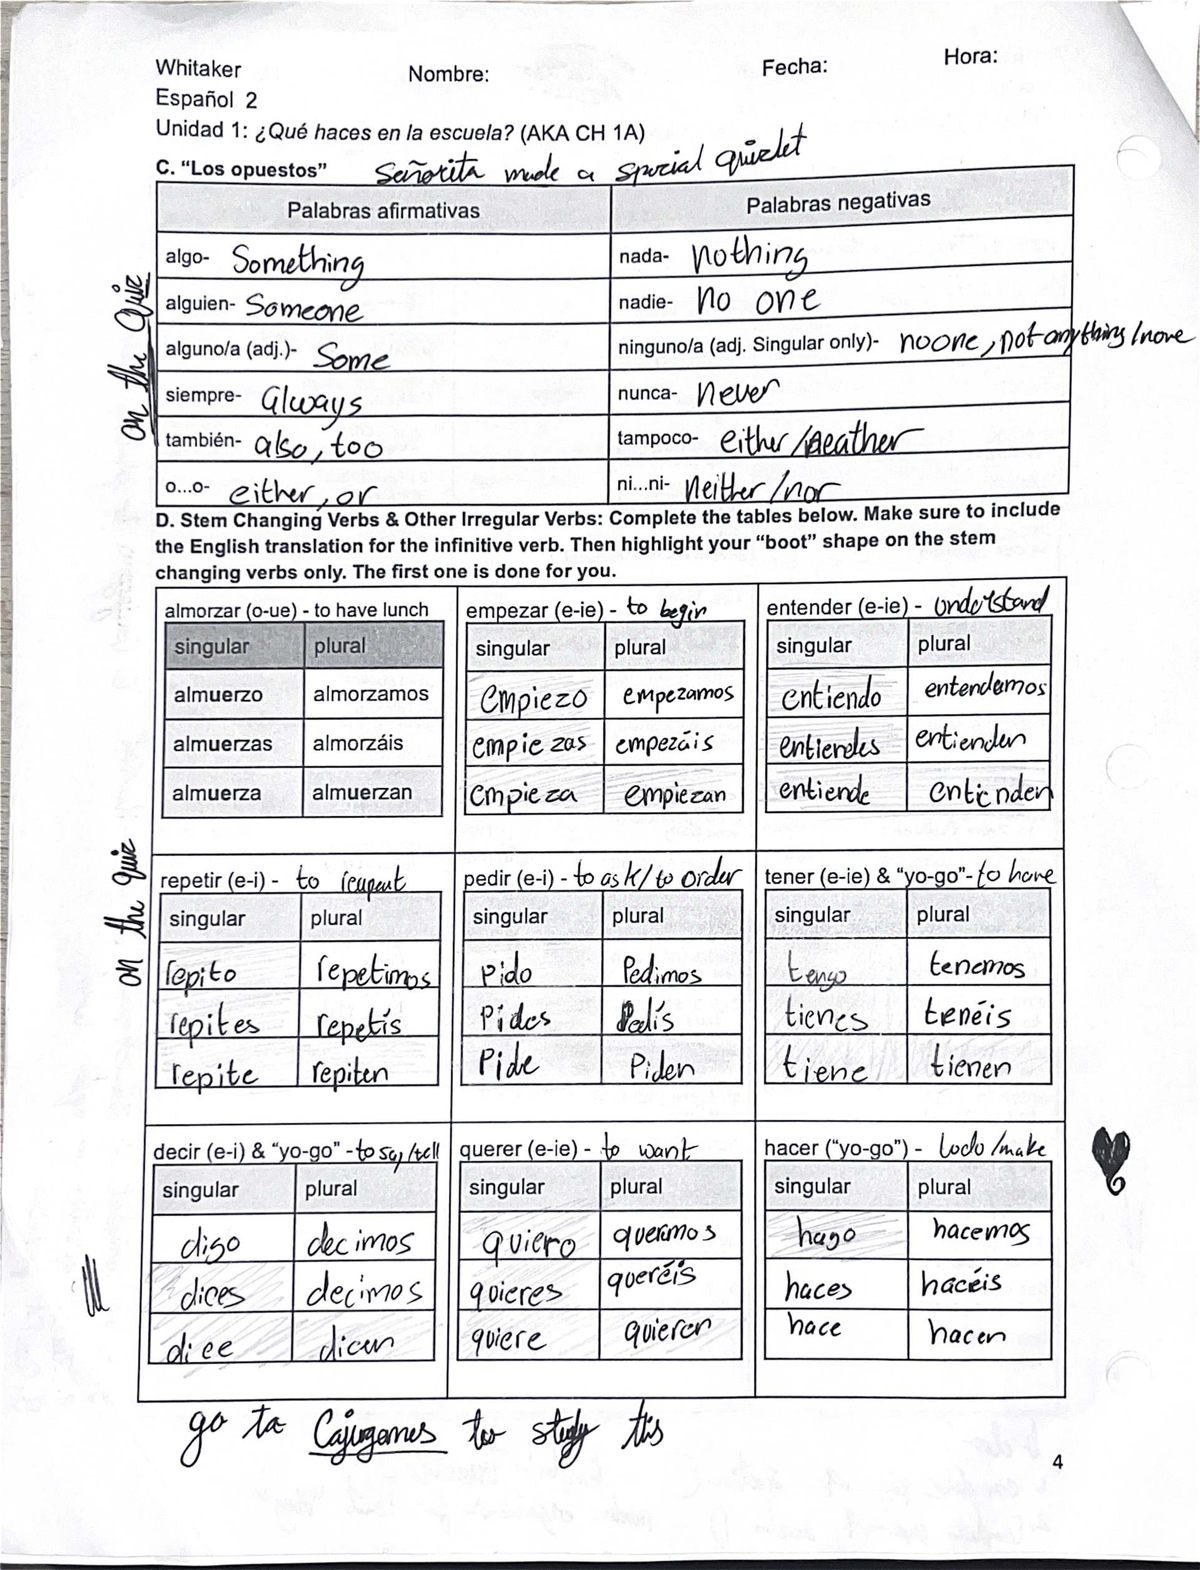 Whitaker Nombre: Fecha: Hora:
Español 2
Unidad 1: ¿Qué haces en la escuela? (AKA CH 1A)
C. "Los opuestos" Señorita made a special quizlet
Palabras afirmativas Palabras negativas
algo- Something nada- nothing
alguien- Someone nadie- no one
alguno/a (adj.)- Some ninguno/a (adj. Singular only)- no one, not anything/none
siempre- always nunca- never
también- also, too tampoco- either/neather
o...o- either, or ni...ni- neither/nor
on the Quiz
D. Stem Changing Verbs & Other Irregular Verbs: Complete the tables below. Make sure to include
the English translation for the infinitive verb. Then highlight your "boot" shape on the stem
changing verbs only. The first one is done for you.
almorzar (o-ue) - to have lunch empezar (e-ie) - to begin entender (e-ie) - understand
singular plural singular plural singular plural
almuerzo almorzamos empiezo empezamos entiendo entendemos
almuerzas almorzáis empiezas empezáis entiendes entienden
almuerza almuerzan empieza empiezan entiende entienden
on the quiz
repetir (e-i) - to pedir (e-i) - to ask/to order tener (e-ie) & "yo-go"- to have
singular plural singular plural singular plural
repito repetimos pido Pedimos tengo tenemos
repites repetís Pides Pedís tienes tenéis
repite repiten Pide Piden tiene tienen
decir (e-i) & "yo-go" - to say/tell querer (e-ie) - to want hacer ("yo-go") - todo/make
singular plural singular plural singular plural
digo decimos quiero queremos hago hacemos
dices decimos quieres queréis haces hacéis
dice dicen quiere quieren hace hacen
go to Cajugames too study this
4